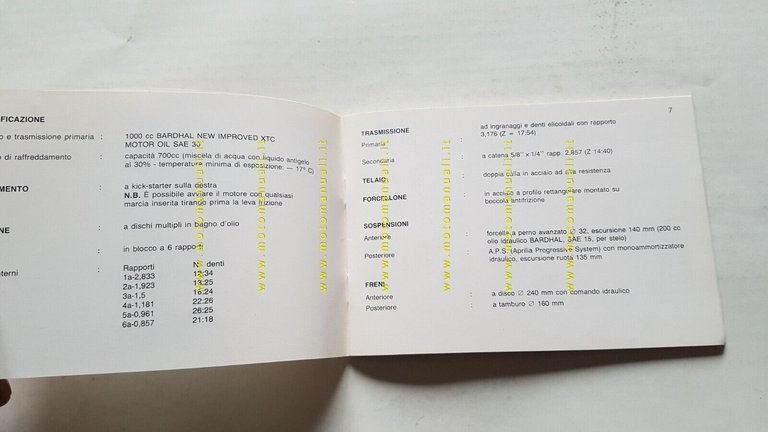 FICAZIONE
o e trasmissione primaria : 1000 cc BARDHAL NEW IMPROVED XTC
MOTOR OIL SAE 30
di raffreddamento : capacità 700cc (miscela di acqua con liquido antigelo
al 30% - temperatura minima di esposizione: — 17° C)
MENTO : a kick-starter sulla destra
N.B. È possibile avviare il motore con qualsiasi
marcia inserita tirando prima la leva frizione
NE : a dischi multipli in bagno d'olio
: in blocco a 6 rapporti
terni : Rapporti N. denti
1a-2,833 12:34
2a-1,923 13:25
3a-1,5 16:24
4a-1,181 22:26
5a-0,961 26:25
6a-0,857 21:18
7
TRASMISSIONE
Primaria : ad ingranaggi e denti elicoidali con rapporto
3,176 (Z = 17:54)
Secondaria : a catena 5/8" × 1/4" rapp. 2,857 (Z 14:40)
TELAIO : doppia culla in acciaio ad alta resistenza
FORCELLONE : in acciaio a profilo rettangolare montato su
boccola antifrizione
SOSPENSIONI
Anteriore : forcella a perno avanzato ∅ 32, escursione 140 mm (200 cc
olio idraulico BARDHAL, SAE 15, per stelo)
Posteriore : A.P.S. (Aprilia Progressive System) con monoammortizzatore
idraulico, escursione ruota 135 mm
FRENI
Anteriore : a disco ∅ 240 mm con comando idraulico
Posteriore : a tamburo ∅ 160 mm